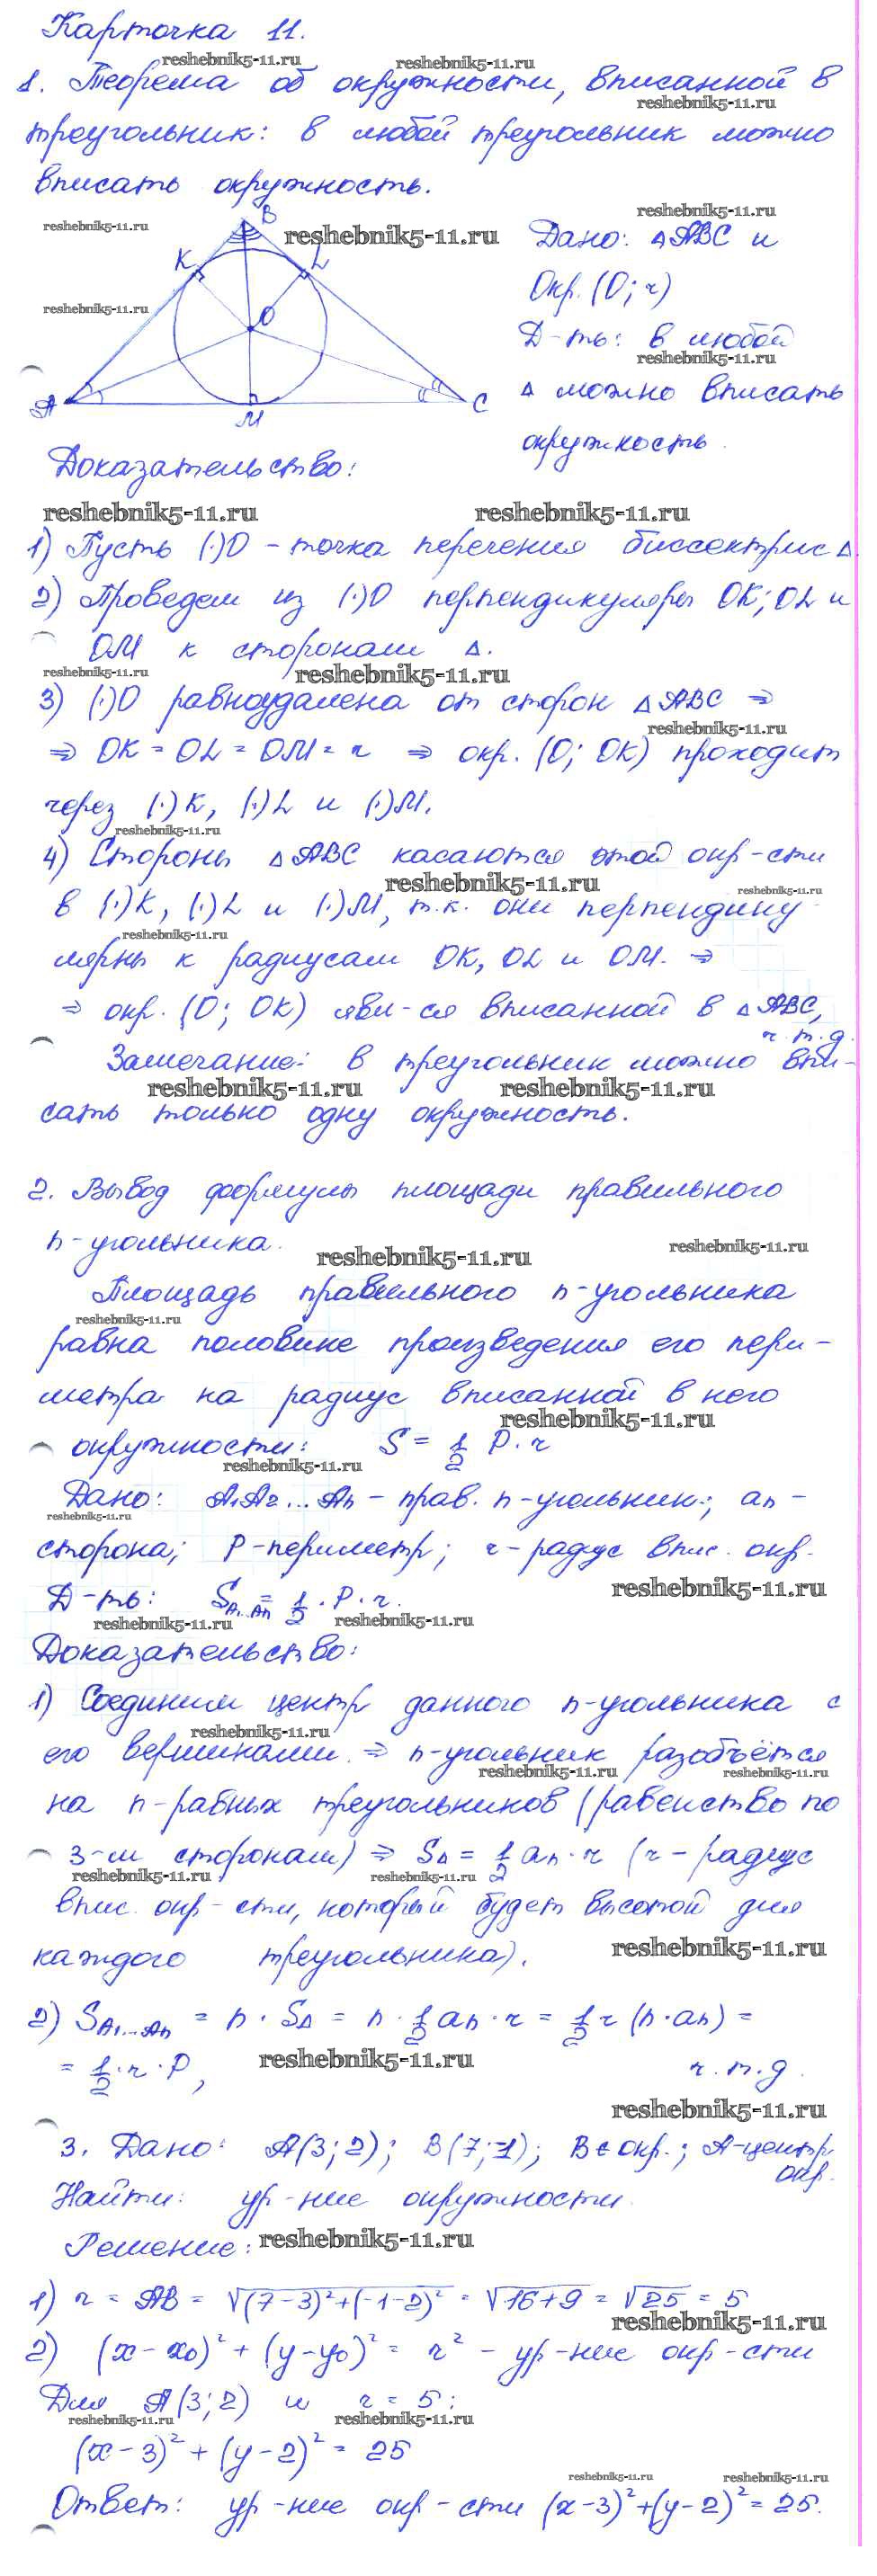 Карточка 11.
reshebnik5-11.ru reshebnik5-11.ru
1. Теорема об окружности, вписанной в
reshebnik5-11.ru
треугольник: в любой треугольник можно
вписать окружность.
reshebnik5-11.ru
reshebnik5-11.ru B reshebnik5-11.ru
Дано: △ABC и
K L
Окр. (O; r)
reshebnik5-11.ru O
Д-ть: в любой
reshebnik5-11.ru
△ можно вписать
A M C
окружность.
Доказательство:
reshebnik5-11.ru reshebnik5-11.ru
1) Пусть (·)O - точка перечения биссектрис △.
2) Проведем из (·)O перпендикуляры OK; OL и
OM к сторонам △.
reshebnik5-11.ru reshebnik5-11.ru
3) (·)O равноудалена от сторон △ABC ⇒
reshebnik5-11.ru
⇒ OK = OL = OM = r ⇒ окр. (O; OK) проходит
через (·)K, (·)L и (·)M.
reshebnik5-11.ru
4) Стороны △ABC касаются этой окр-сти
reshebnik5-11.ru reshebnik5-11.ru
в (·)K, (·)L и (·)M, т.к. они перпендику-
reshebnik5-11.ru
лярны к радиусам OK, OL и OM. ⇒
⇒ окр. (O; OK) явл-ся вписанной в △ABC,
ч.т.д.
Замечание: в треугольник можно впи-
reshebnik5-11.ru reshebnik5-11.ru
сать только одну окружность.
2. Вывод формулы площади правильного
n-угольника.
reshebnik5-11.ru reshebnik5-11.ru
Площадь правильного n-угольника
reshebnik5-11.ru
равна половине произведения его пери-
метра на радиус вписанной в него
reshebnik5-11.ru
окружности: S = 1/2 P · r
reshebnik5-11.ru
Дано: A₁A₂...Aₙ - прав. n-угольник; aₙ -
reshebnik5-11.ru
сторона; P-периметр; r-радиус впис. окр.
reshebnik5-11.ru
Д-ть: S A₁...Aₙ = 1/2 · P · r.
reshebnik5-11.ru reshebnik5-11.ru
Доказательство:
1) Соединим центр данного n-угольника с
reshebnik5-11.ru
его вершинами. ⇒ n-угольник разобьётся
reshebnik5-11.ru reshebnik5-11.ru
на n-равных треугольников (равенство по
3-м сторонам) ⇒ S△ = 1/2 aₙ · r (r - радиус
reshebnik5-11.ru reshebnik5-11.ru
впис. окр-сти, который будет высотой для
reshebnik5-11.ru
каждого треугольника).
2) S A₁...Aₙ = n · S△ = n · 1/2 aₙ · r = 1/2 r (n · aₙ) =
= 1/2 · r · P, reshebnik5-11.ru ч.т.д.
reshebnik5-11.ru
3. Дано: A(3; 2); B(7; -1); B ∈ окр.; A-центр
окр.
Найти: ур-ние окружности.
Решение: reshebnik5-11.ru
1) r = AB = √(7-3)² + (-1-2)² = √16+9 = √25 = 5
reshebnik5-11.ru
2) (x - x₀)² + (y - y₀)² = r² - ур-ние окр-сти
Для A(3; 2) и r = 5:
reshebnik5-11.ru reshebnik5-11.ru
(x - 3)² + (y - 2)² = 25
reshebnik5-11.ru reshebnik5-11.ru
Ответ: ур-ние окр-сти (x-3)² + (y-2)² = 25.